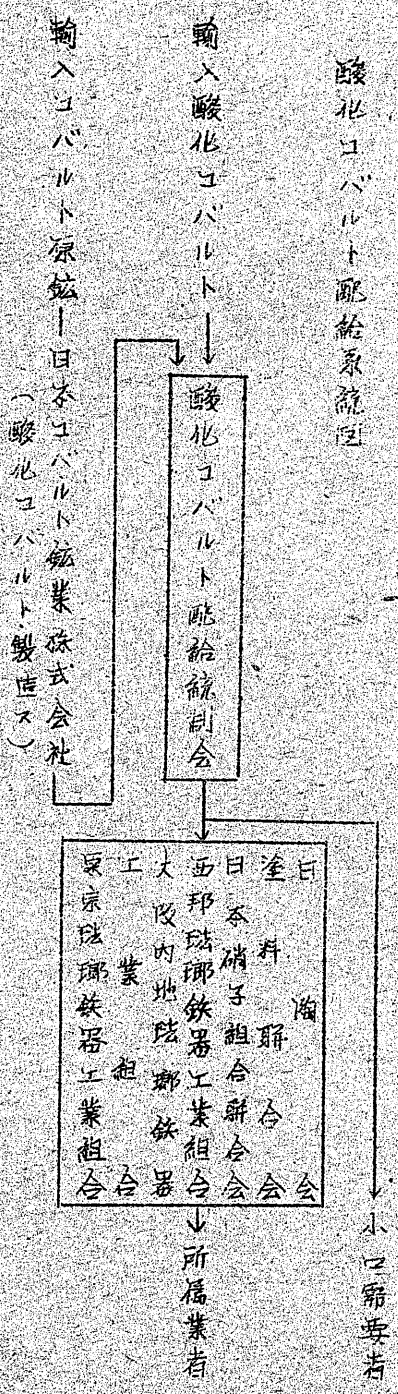 酸化コバルト配給系統図
輸入酸化コバルト
輸入コバルト原鉱ー日本コバルト鉱業株式会社
(酸化コバルト製造ス)
酸化コバルト配給統制会
日陶会
塗料聯合会
日本硝子組合聯合会
西邦琺瑯鉄器工業組合
大阪内地琺瑯鉄器
工業組合
東京琺瑯鉄器工業組合
小口需要者
所属業者